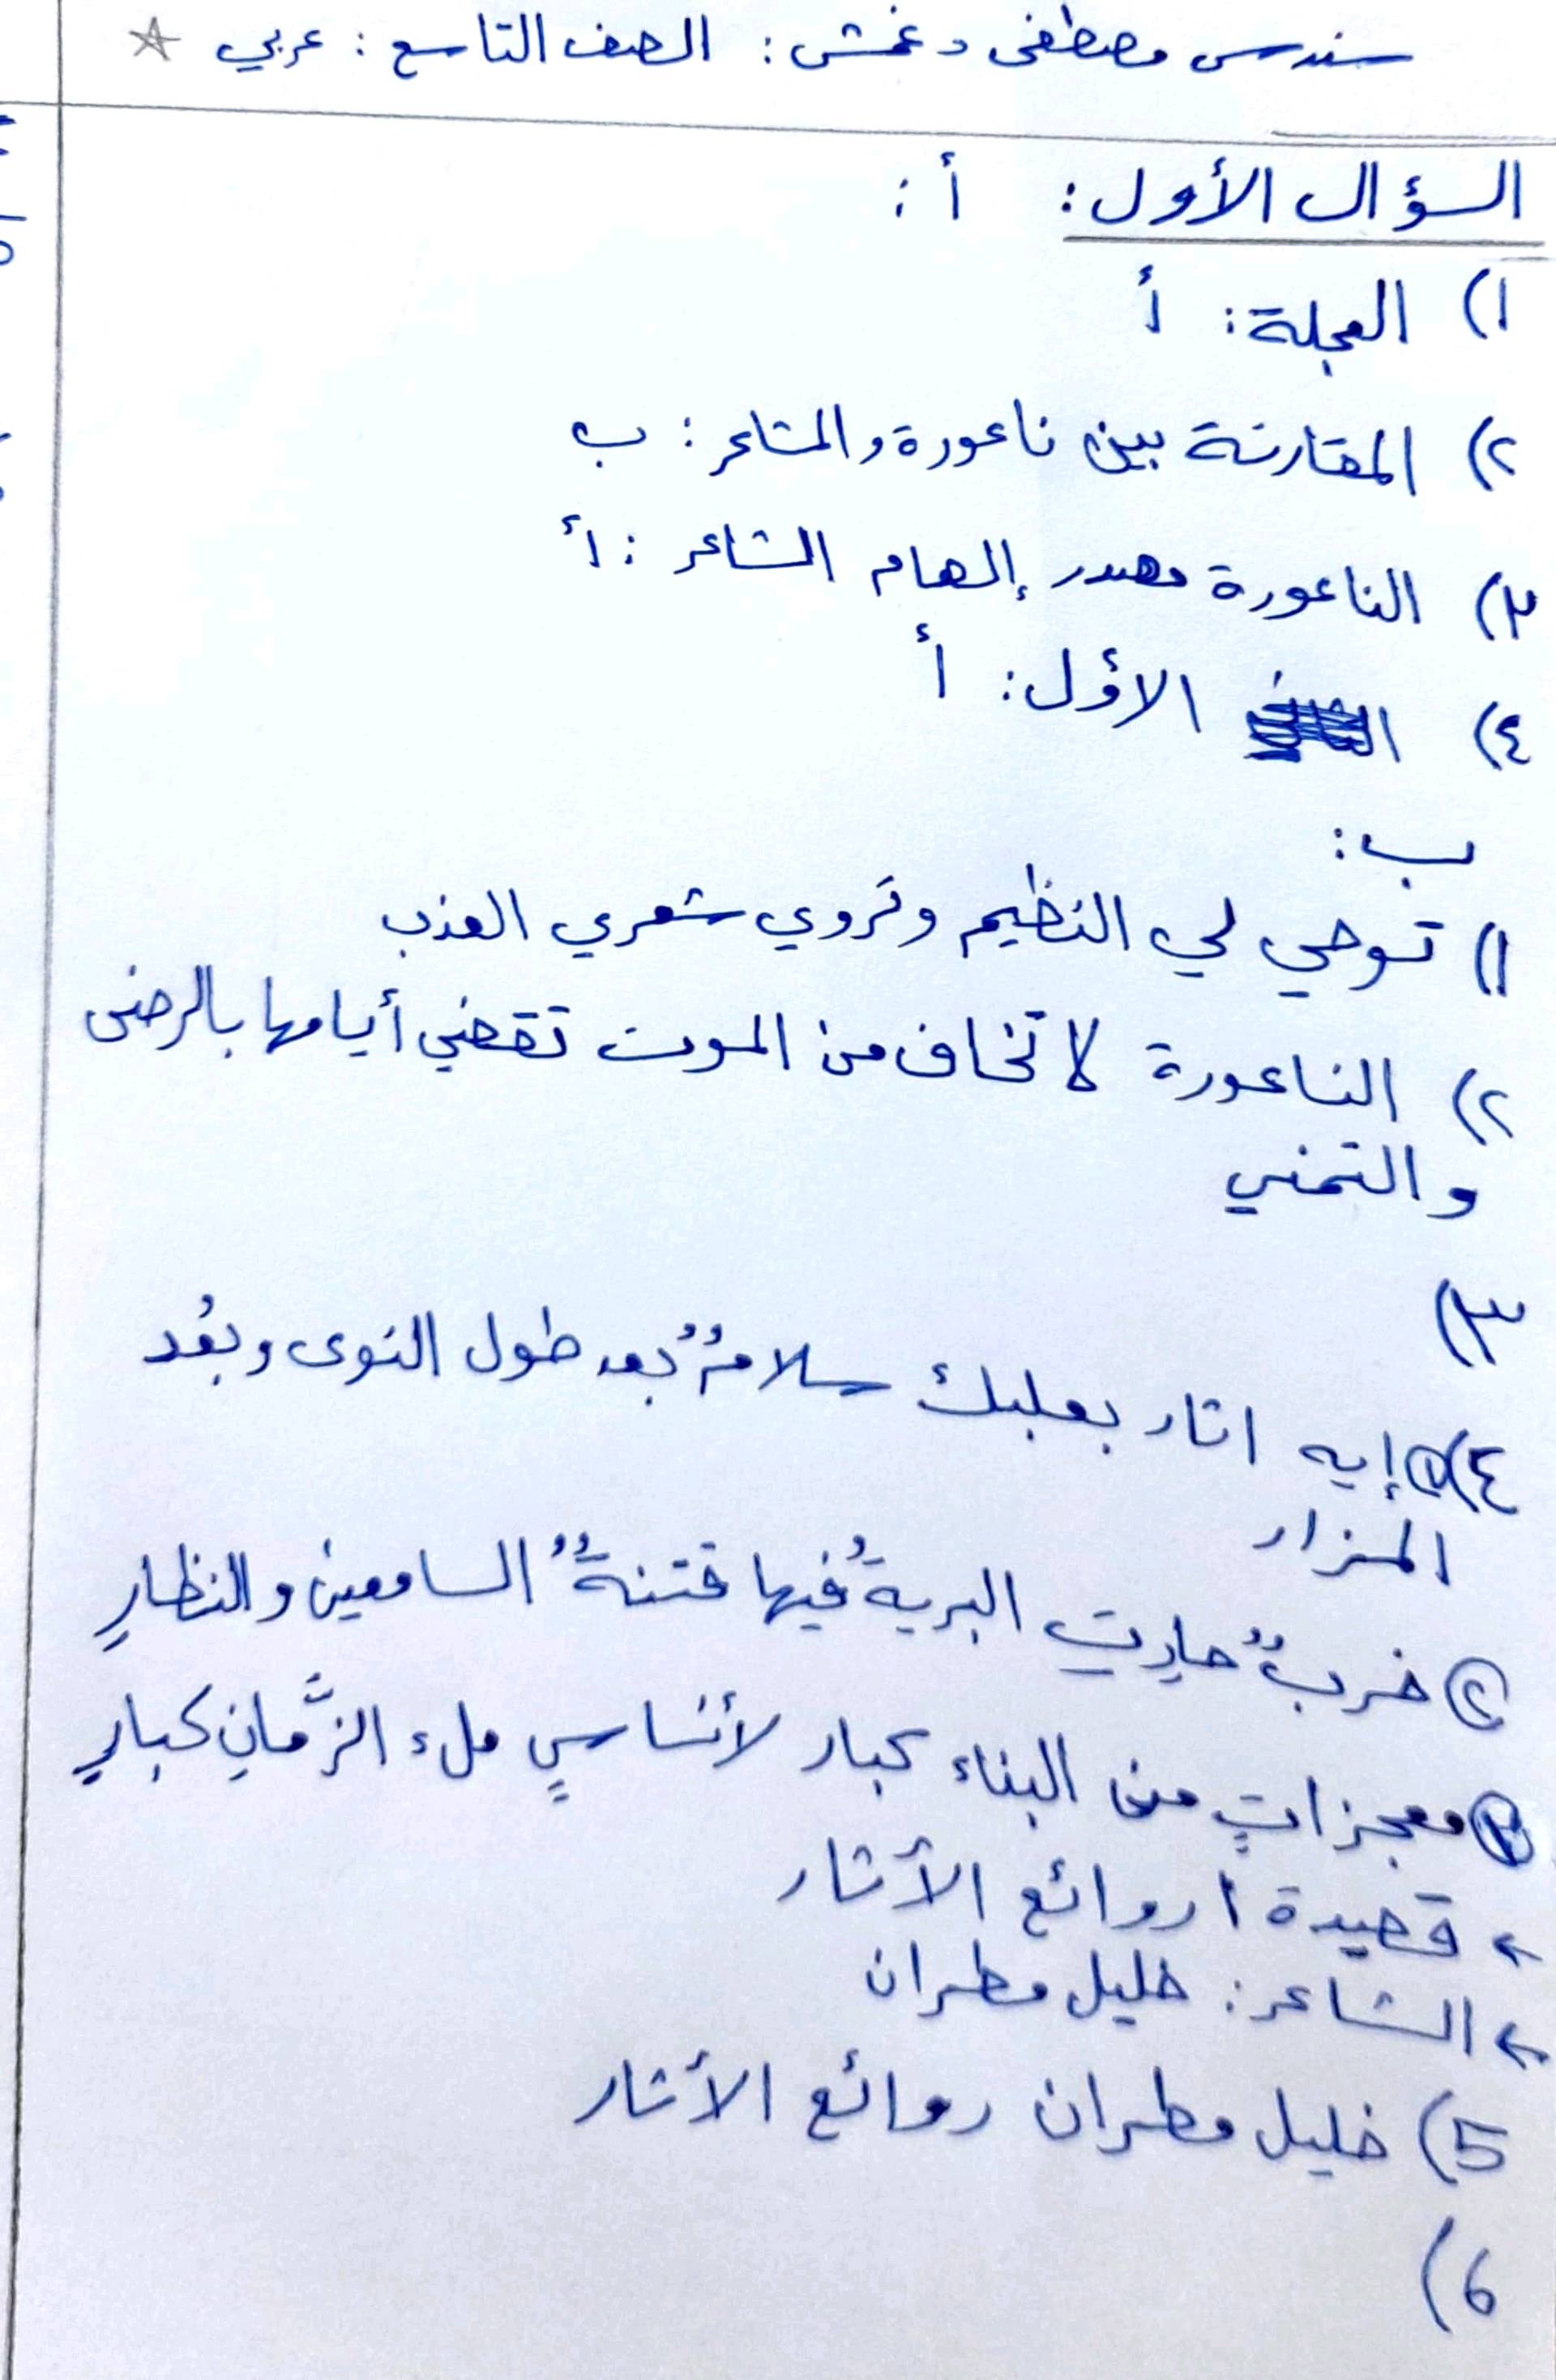 سندس مصطفى دغمش : الصف التاسع : عربي
السؤال الأول : أ :
١) العجلة : أ
٢) المقارنة بين ناعورة والمشاعر : ب
٣) الناعورة مصدر إلهام الشاعر : أ
٤) الأول : أ
ب :
١) توحي لي النظيم وتروي شعري العذب
٢) الناعورة لا تخاف من الموت تقضي أيامها بالرضى
والتمني
٣)
٤) ① إيه اثار بعلبك سلامٌ بعد طول النوى وبُعد
المزار
② خربٌ حارتِ البريةُ فيها فتنةٌ السامعين والنظارِ
③ معجزاتٍ من البناء كبار لأناسٍ ملء الزَّمانِ كبارِ
قصيدة : روائع الأثار
الشاعر : خليل مطران
5) خليل مطران روائع الأثار
6)